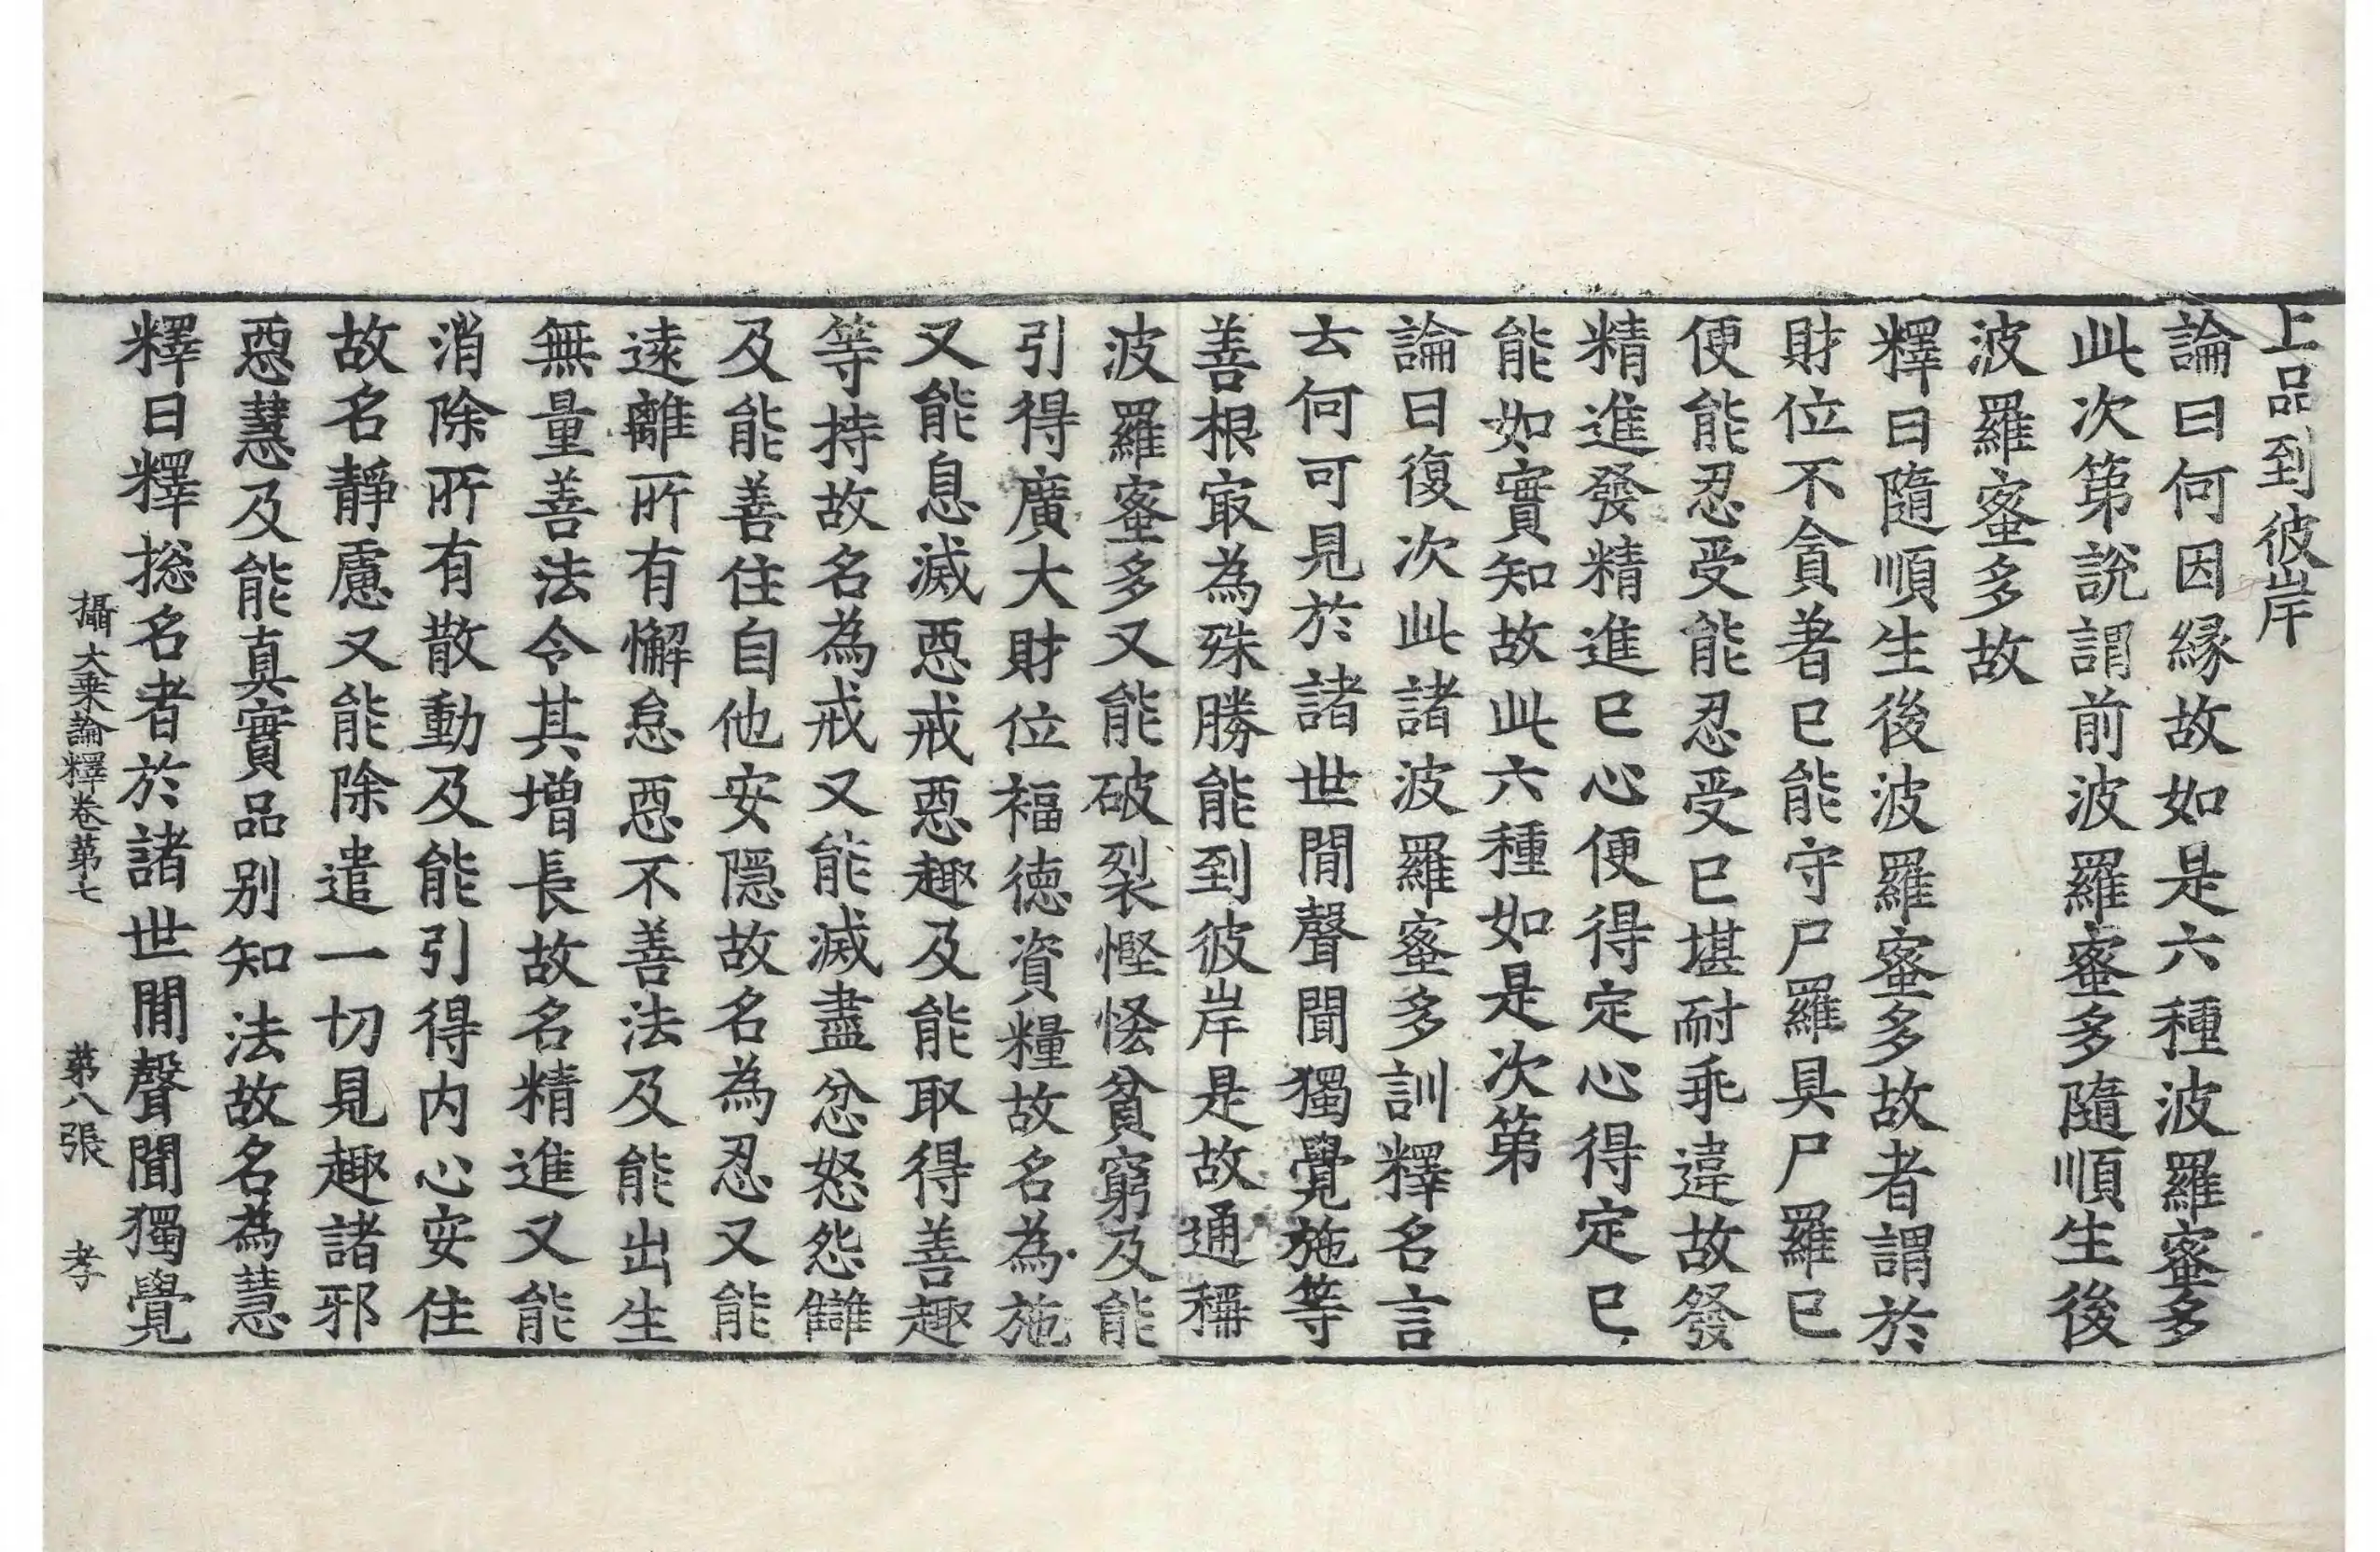 上品到彼岸
論曰何因縁故如是六種波羅蜜多
此次第說謂前波羅蜜多隨順生後
波羅蜜多故
釋曰隨順生後波羅蜜多故者謂於
財位不貪著已能守尸羅具尸羅已
便能忍受能忍受已堪耐乖違故發
精進發精進已心便得定心得定已
能如實知故此六種如是次第
論曰復次此諸波羅蜜多訓釋名言
云何可見於諸世閒聲聞獨覺施等
善根㝡為殊勝能到彼岸是故通稱
波羅蜜多又能破裂慳悋貧窮及能
引得廣大財位福德資糧故名為施
又能息滅惡戒惡趣及能取得善趣
等持故名為戒又能滅盡忿怒怨讎
及能善住自他安隱故名為忍又能
遠離所有懈怠惡不善法及能出生
無量善法令其增長故名精進又能
消除所有散動及能引得內心安住
故名靜慮又能除遣一切見趣諸邪
惡慧及能真實品別知法故名為慧
釋曰釋捴名者於諸世閒聲聞獨覺
攝大乘論釋卷第七 第八張 孝